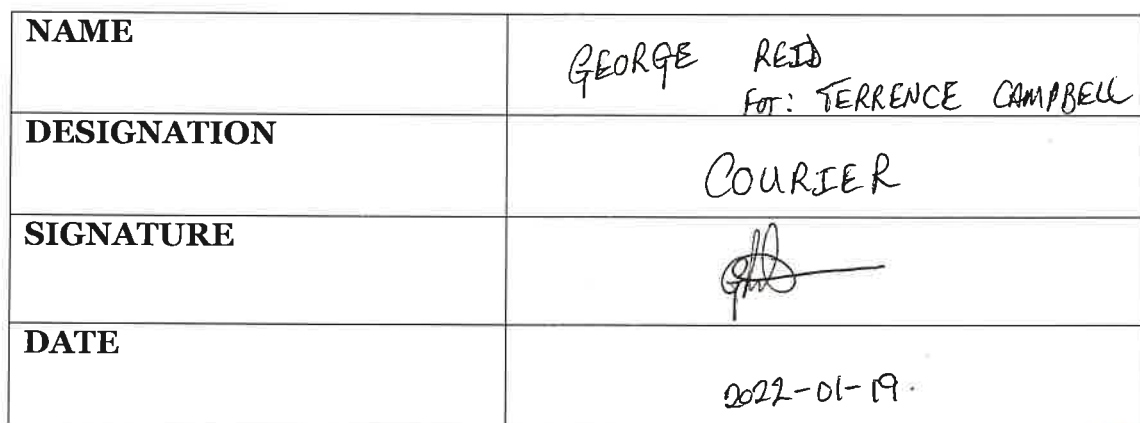 NAME
GEORGE REID
FOR: TERRENCE CAMPBELL
DESIGNATION
COURIER
SIGNATURE
DATE
2022-01-19.